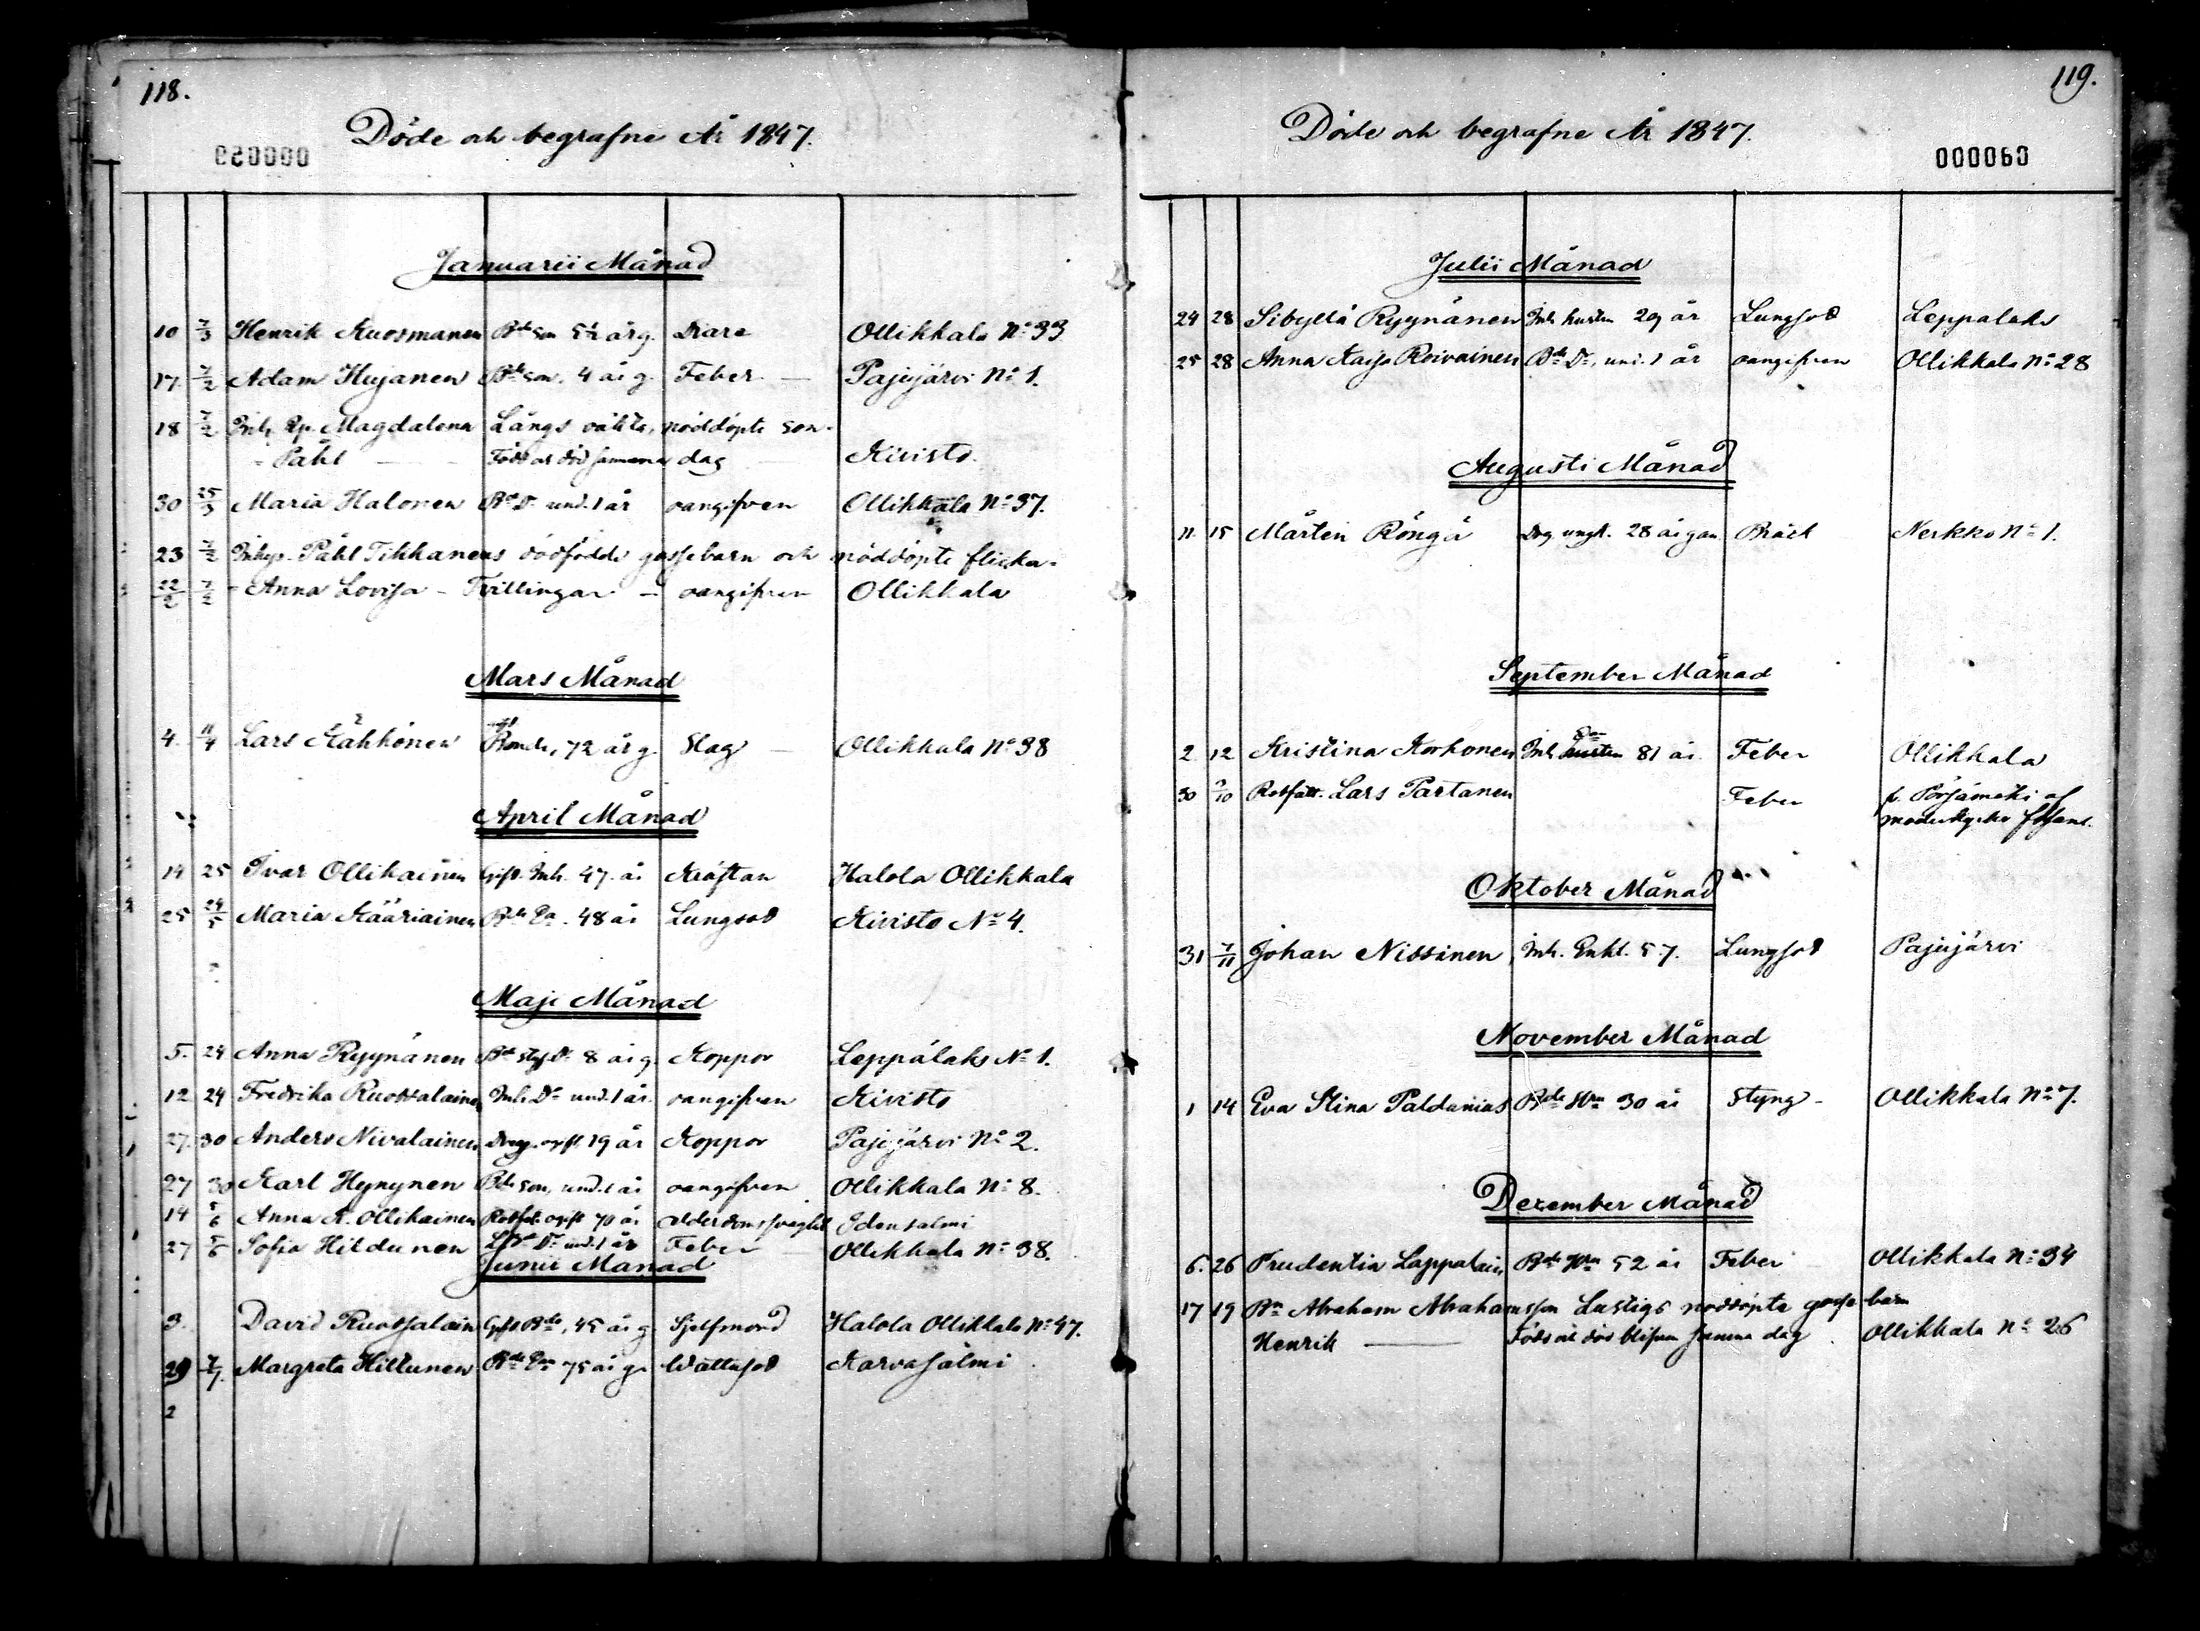 118.
Döde och begrafne År 1847.
000059
Januarii Månad
10 7/3 Henrik Kuosmanen Bde son 5½ år g. Diare Ollikkala No 33
17. 7/2 Adam Hujanen Bde son. 4 år g. Feber — Pajujärvi No 1.
18 7/2 Inh. Magdalena Långs oäkta, nöddöpte son
Påhl — Född och död samma dag Kiivisto.
30 25/3 Maria Halonen Bde Dr und. 1 år oangifven Ollikkala No 37.
23 7/2 Påhl Tikkanens dödfödde gossebarn och nöddöpte flicka.
22/2 7/2 - Anna Lovisa - Tvillingar - oangifven Ollikkala
Mars Månad
4. 11/4 Lars Kähkönen Bonde, 72 år g. Slag — Ollikkala No 38
April Månad
14 25 Ivar Ollikainen Gift. Inh. 47 år Kräftan Halola Ollikkala
25 24/5 Maria Kääriainen Bde Ea. 48 år Lungsot Kivisto No 4.
Maji Månad
5. 24 Anna Ryynänen Bde styf Dr 8 år g. Koppor Leppälaks No 1.
12 24 Fredrika Ruotsalainen Inh. Dr und. 1 år. oangifven Kivisto
27. 30 Anders Nivalainen Dreng. ogift 19 år Koppor Pajujärvi No 2.
27 30 Karl Hynynen Bde son, und. 1 år oangifven Ollikkala No 8.
14 5/6 Anna K. Ollikainen ogift 70 år Idensalmi
27 5/6 Sofia Hildunen Dr und. 1 år Feber — Ollikkala No 38.
Junii Månad
3. David Ruotsalain Gift Bde, 45 år g. Sjelfmord Halola Ollikkala No 47.
29 7/7. Margreta Hiltunen Bde Ea 75 år g. Wattusot Karvasalmi
2
119.
Döde och begrafne År 1847.
000060
Julii Månad
24 28 Sibylla Ryynänen Inh. hustru 29 år Lungsot Leppalaks
25 28 Anna Kaisa Roivainen Bde Dr, und. 1 år oangifven Ollikkala No 28
Augusti Månad
11. 15 Mårten Röngä Drg ungk. 28 år gam. Bräck Nerkko No 1.
September Månad
2. 12 Kristina Korhonen Inh. Ea 81 år. Feber Ollikkala
30 9/10 Rotfatt. Lars Partanen Feber fr. Pörsämäki af
moderkyrko förs.
Oktober Månad
31 7/11 Johan Nissinen Inh. Enkl. 57. Lungsot Pajujärvi
November Månad
1 14 Eva Stina Paldanias Bde Hu 30 år Styng - Ollikkala No 7.
December Månad
6. 26 Prudentia Lappalain Bde Hu 52 år Feber Ollikkala No 34
17 19 Bn Abraham Abrahamsson Lustigs nöddöpta gosse barn
Henrik — Född och död blifven samma dag. Ollikkala No 26